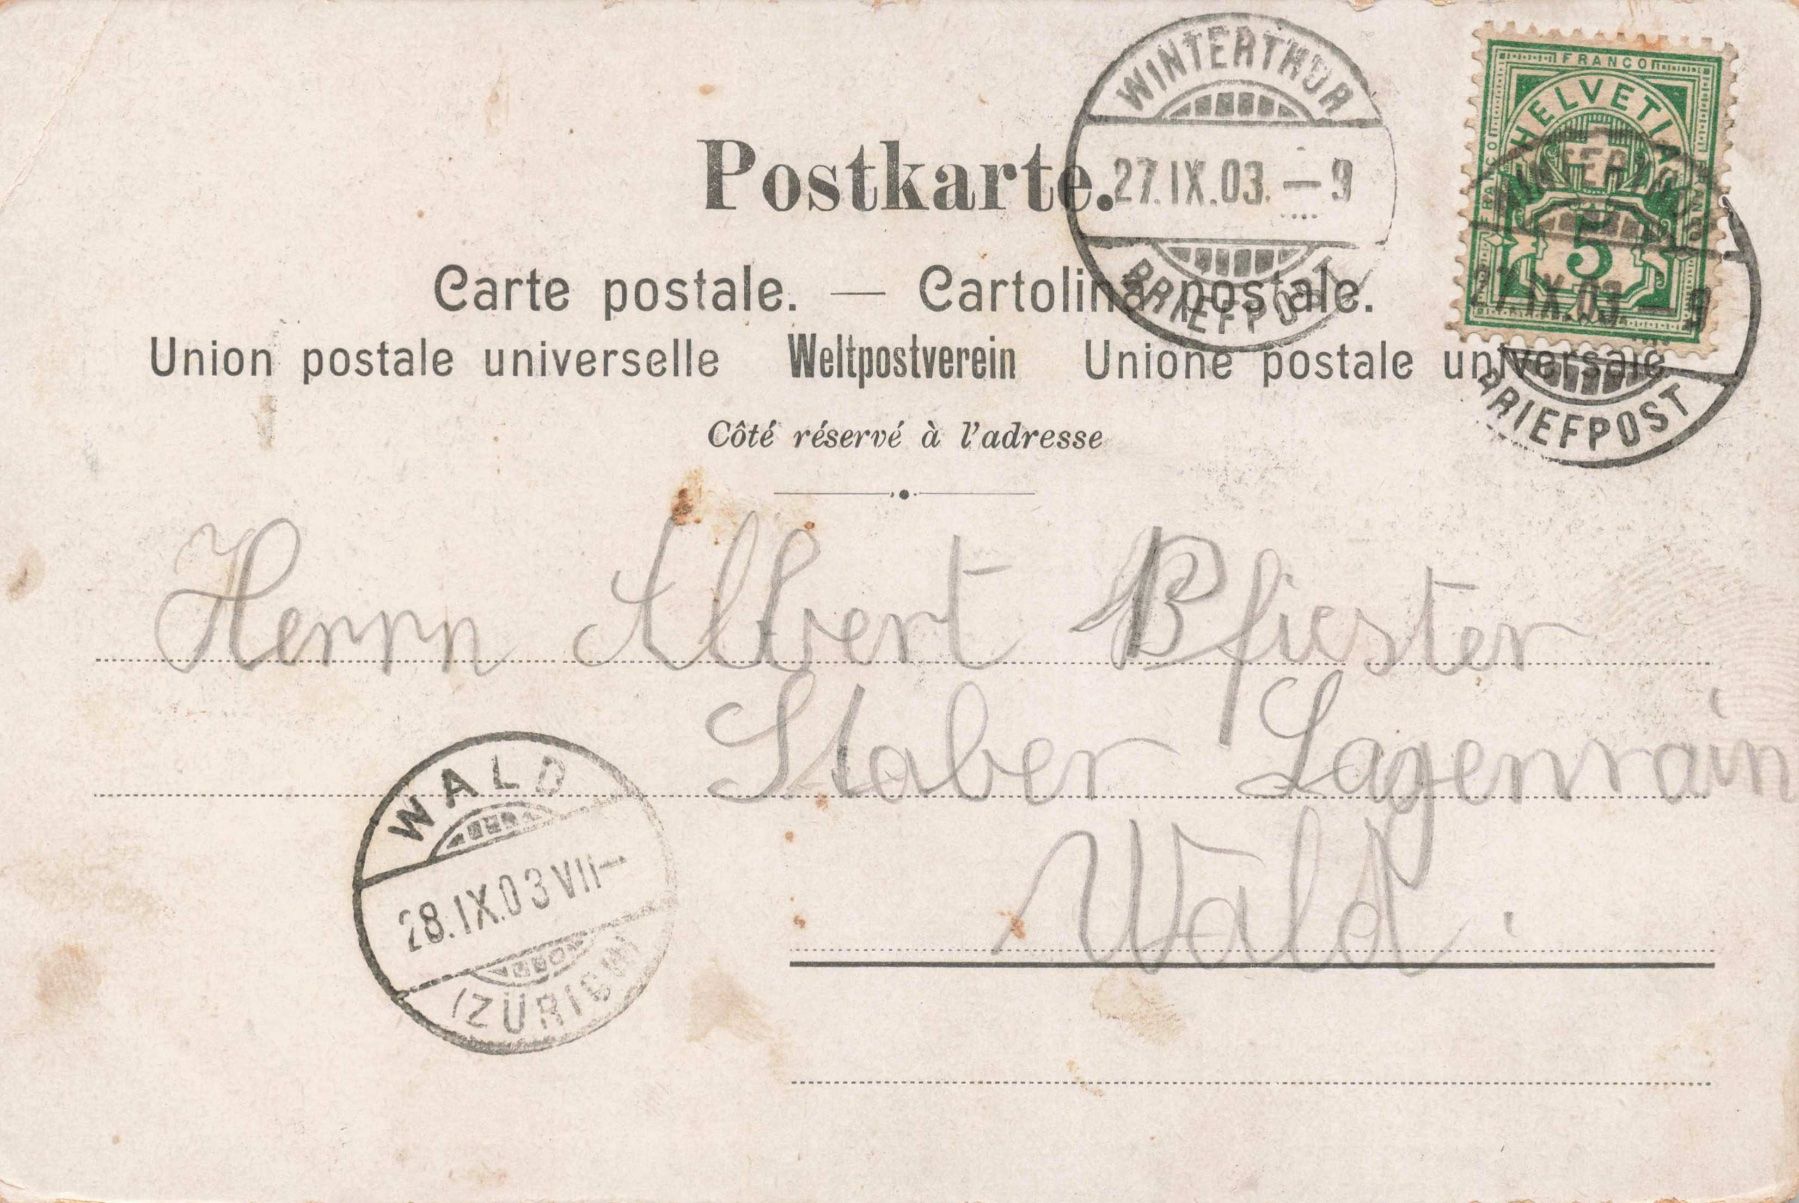 WINTERTHUR
27.IX.03.—9
BRIEFPOST
FRANCO
HELVETIA
FRANCO
FRANCO
5
27.IX.03.—9
BRIEFPOST
Postkarte.
Carte postale. — Cartolina postale.
Union postale universelle Weltpostverein Unione postale universale
Côté réservé à l'adresse
Herrn Albert Pfiester
Staber Lagenrain
Wald.
WALD
28.IX.03 VII—
(ZÜRICH)